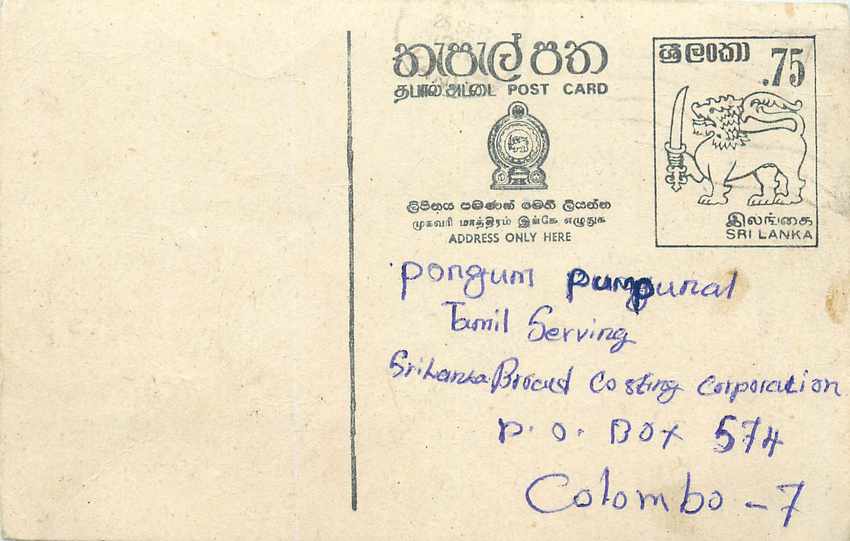 තැපැල් පත
தபால் அட்டை POST CARD
ලිපිනය පමණක් මෙහි ලියන්න
முகவரி மாத்திரம் இங்கே எழுதுக
ADDRESS ONLY HERE
ශ්‍රී ලංකා
.75
இலங்கை
SRI LANKA
Pongum Pumpunal
Tamil Serving
SriLanka Broad Costing Corporation
P.O. BOX 574
Colombo - 7